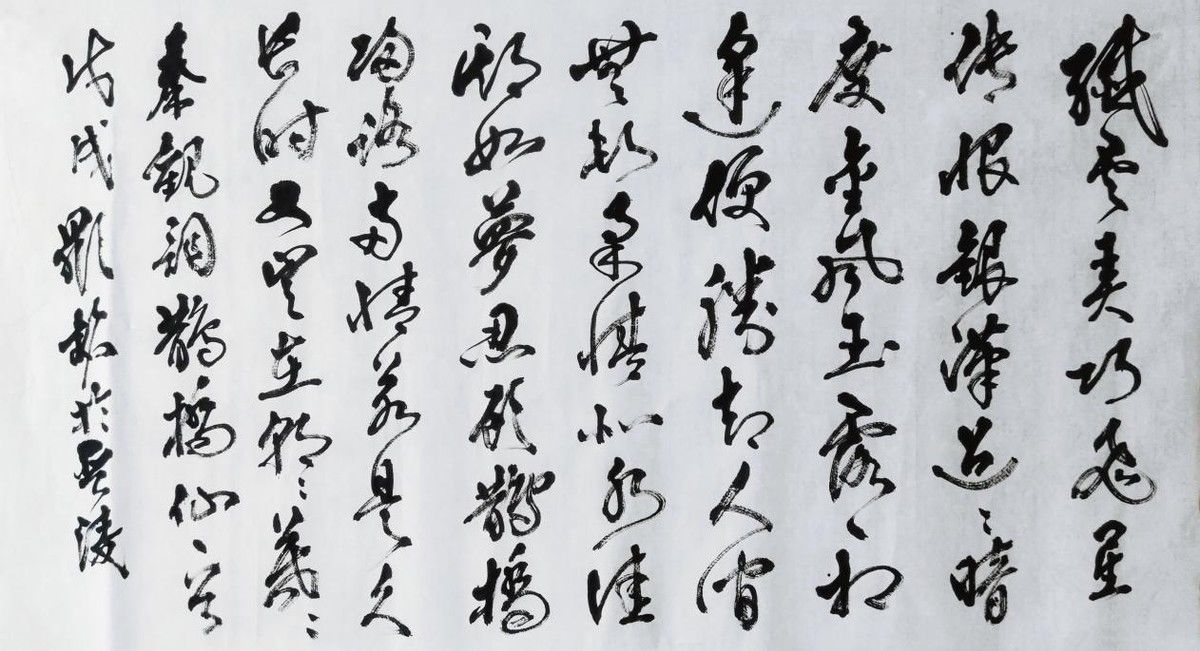 纖雲弄巧飛星
傳恨銀漢迢〻暗
度金風玉露一相
逢便勝却人間
無數柔情似水佳
期如夢忍顧鵲橋
歸路兩情若是久
長時又豈在朝〻暮〻
秦觀詞鵲橋仙一首
戊戌於陵